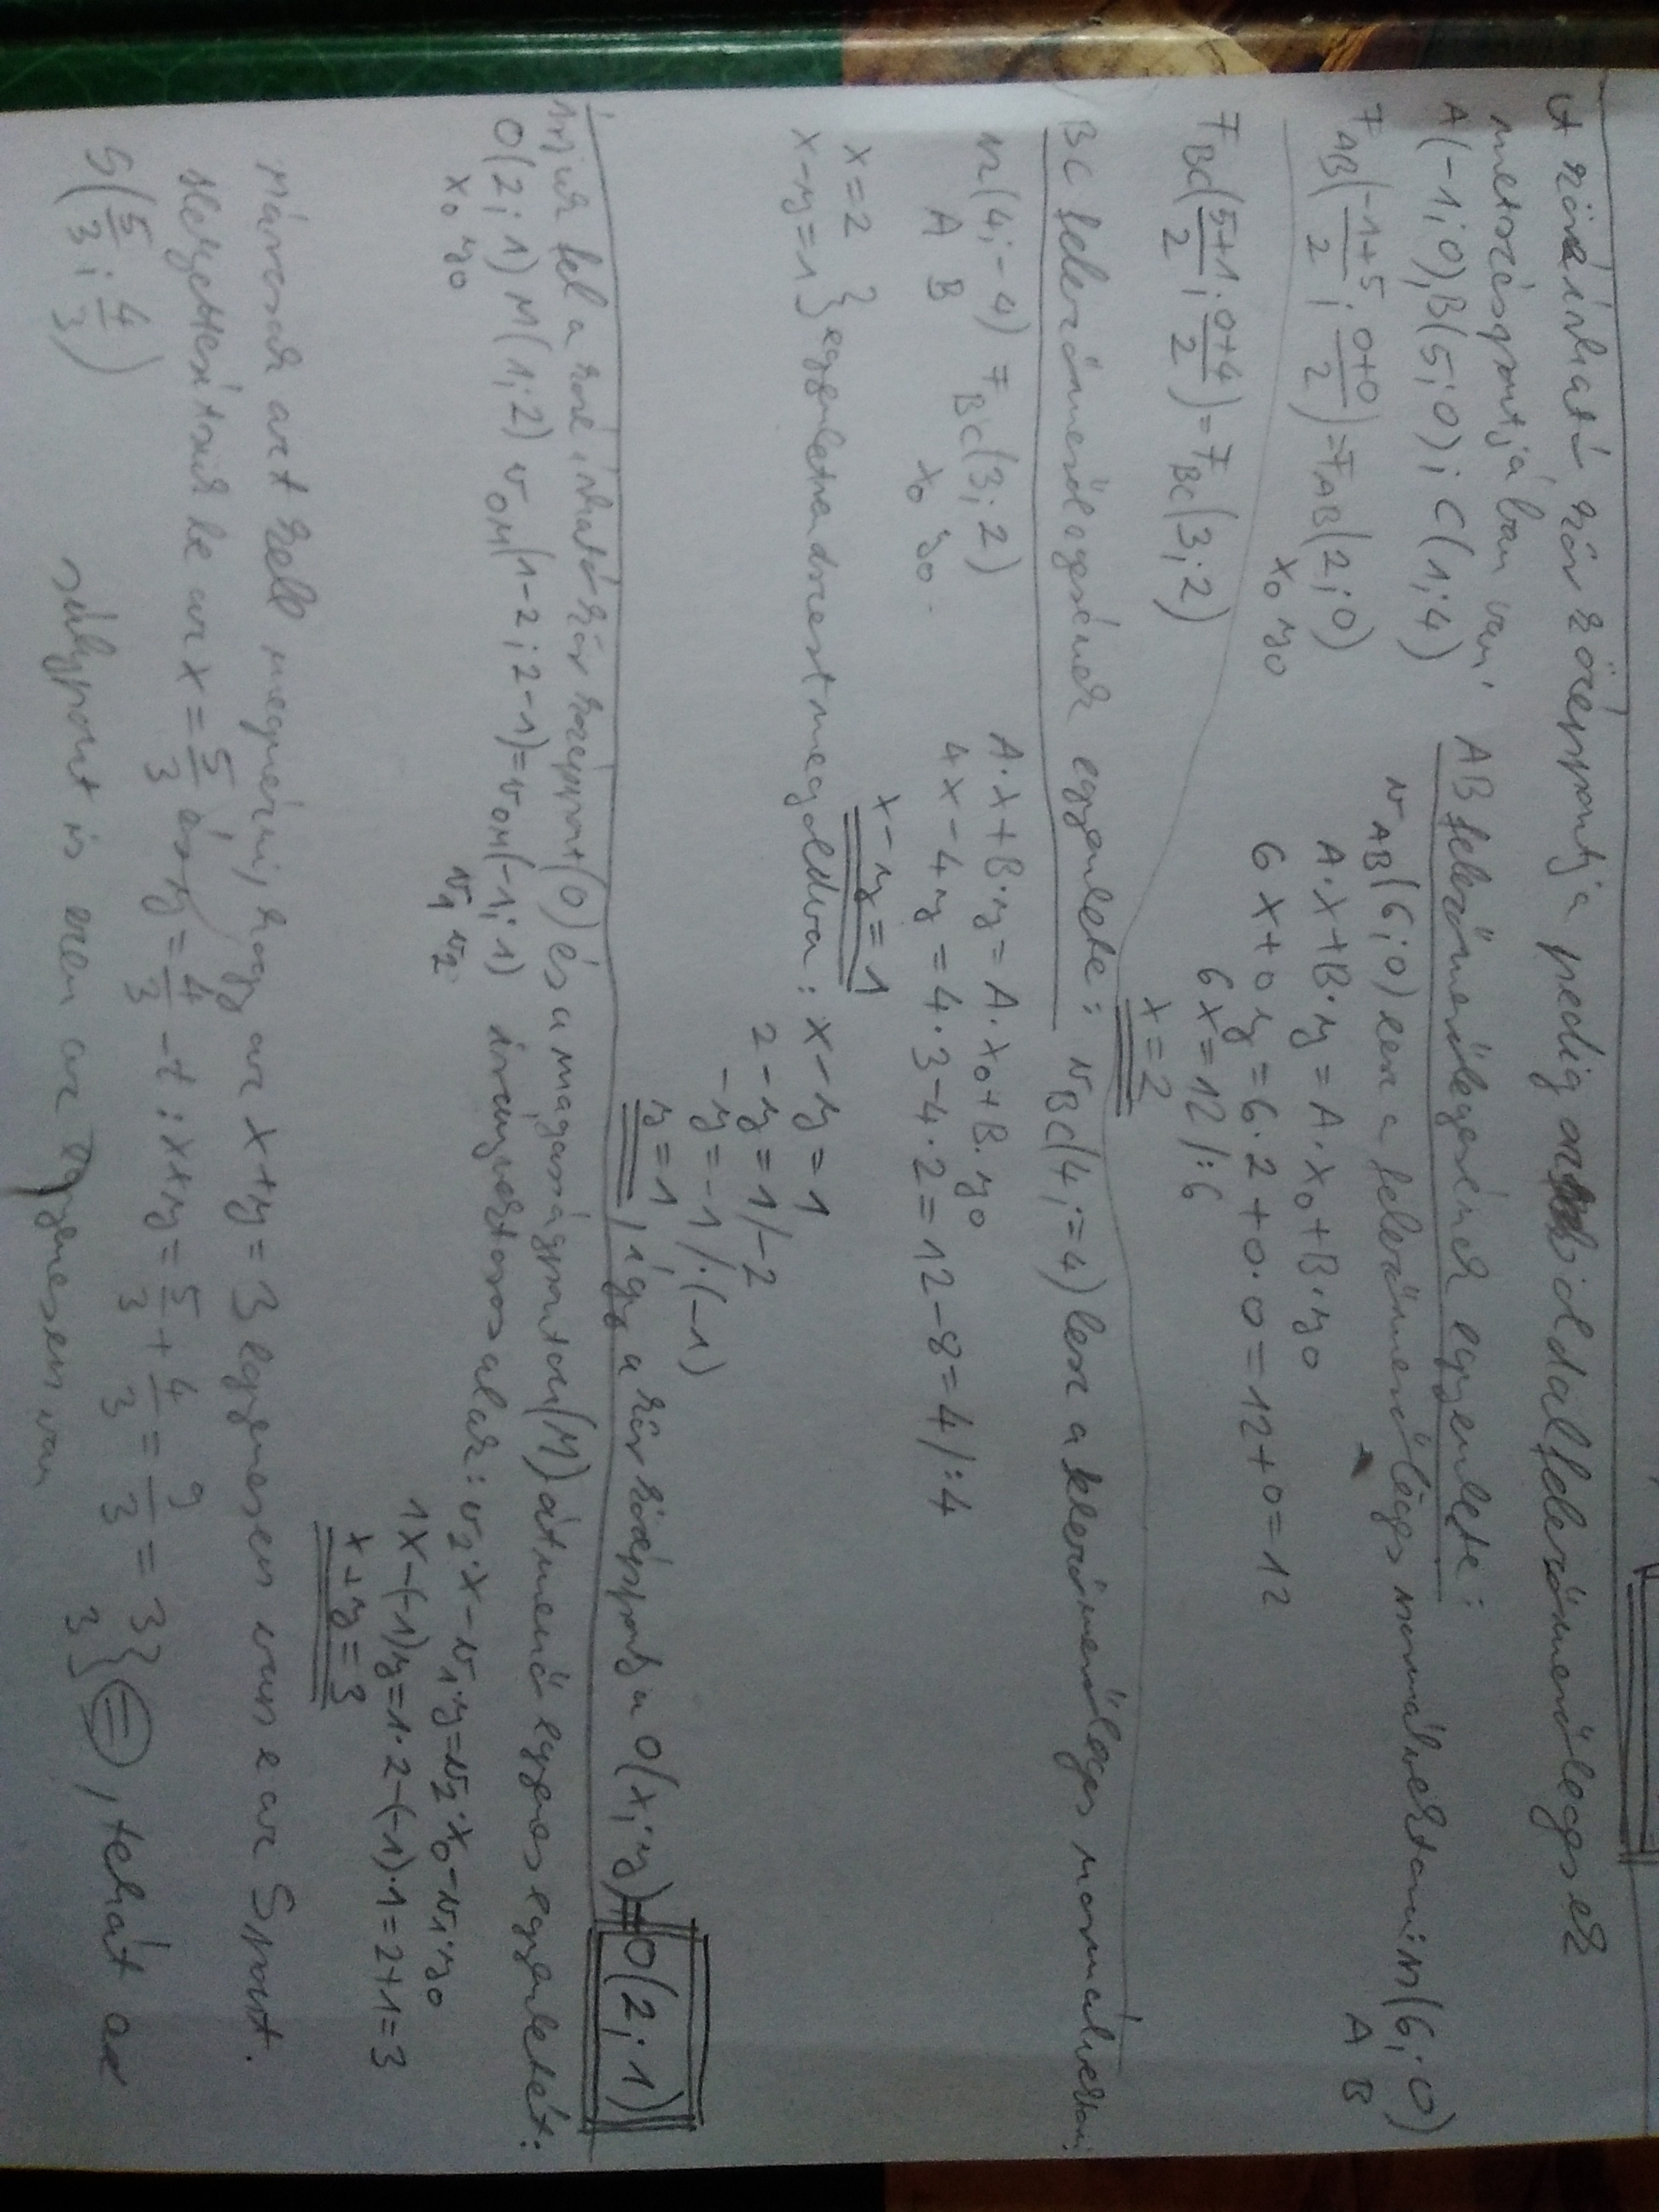 A köréírható kör középpontja pedig az oldalfelezőmerőlegesek
metszéspontjában van.
A(-1;0), B(5;0); C(1;4) AB felezőmerőlegesének egyenlete:
F_AB(\frac{-1+5}{2}; \frac{0+0}{2})=F_AB(2;0) v_AB(6;0) lesz a felezőmerőleges normálvektora: n(6;0)
x_0 y_0 A·x+B·y=A·x_0+B·y_0 A B
6x+0y=6·2+0·0=12+0=12
F_BC(\frac{5+1}{2}; \frac{0+4}{2})=F_BC(3;2) 6x=12/:6
x=2
BC felezőmerőlegesének egyenlete: v_BC(4;-4) lesz a felezőmerőleges normálvektora:
n(4;-4) F_BC(3;2) A·x+B·y=A·x_0+B·y_0
A B x_0 y_0 4x-4y=4·3-4·2=12-8=4/:4
x-y=1
x=2
x-y=1 } egyenletrendszert megoldva: x-y=1
2-y=1/-2
-y=-1/·(-1)
y=1, így a kör középpontja O(x;y)=O(2;1)
Írjuk fel a köré írható kör középpont(O) és a magasságponton(M) átmenő egyenes egyenletét:
O(2;1) M(1;2) v_OM(1-2;2-1)=v_OM(-1;1) irányvektoros alak: v_2·x-v_1·y=v_2·x_0-v_1·y_0
x_0 y_0 v_1 v_2 1x-(-1)y=1·2-(-1)·1=2+1=3
x+y=3
Már csak azt kell megnézni, hogy az x+y=3 egyenesen van e az S pont.
Helyettesítsük be az x=\frac{5}{3} és y=\frac{4}{3} -t: x+y=\frac{5}{3}+\frac{4}{3}=\frac{9}{3}=3
3 } (=), tehát az
S(\frac{5}{3}; \frac{4}{3}) súlypont is ezen az egyenesen van